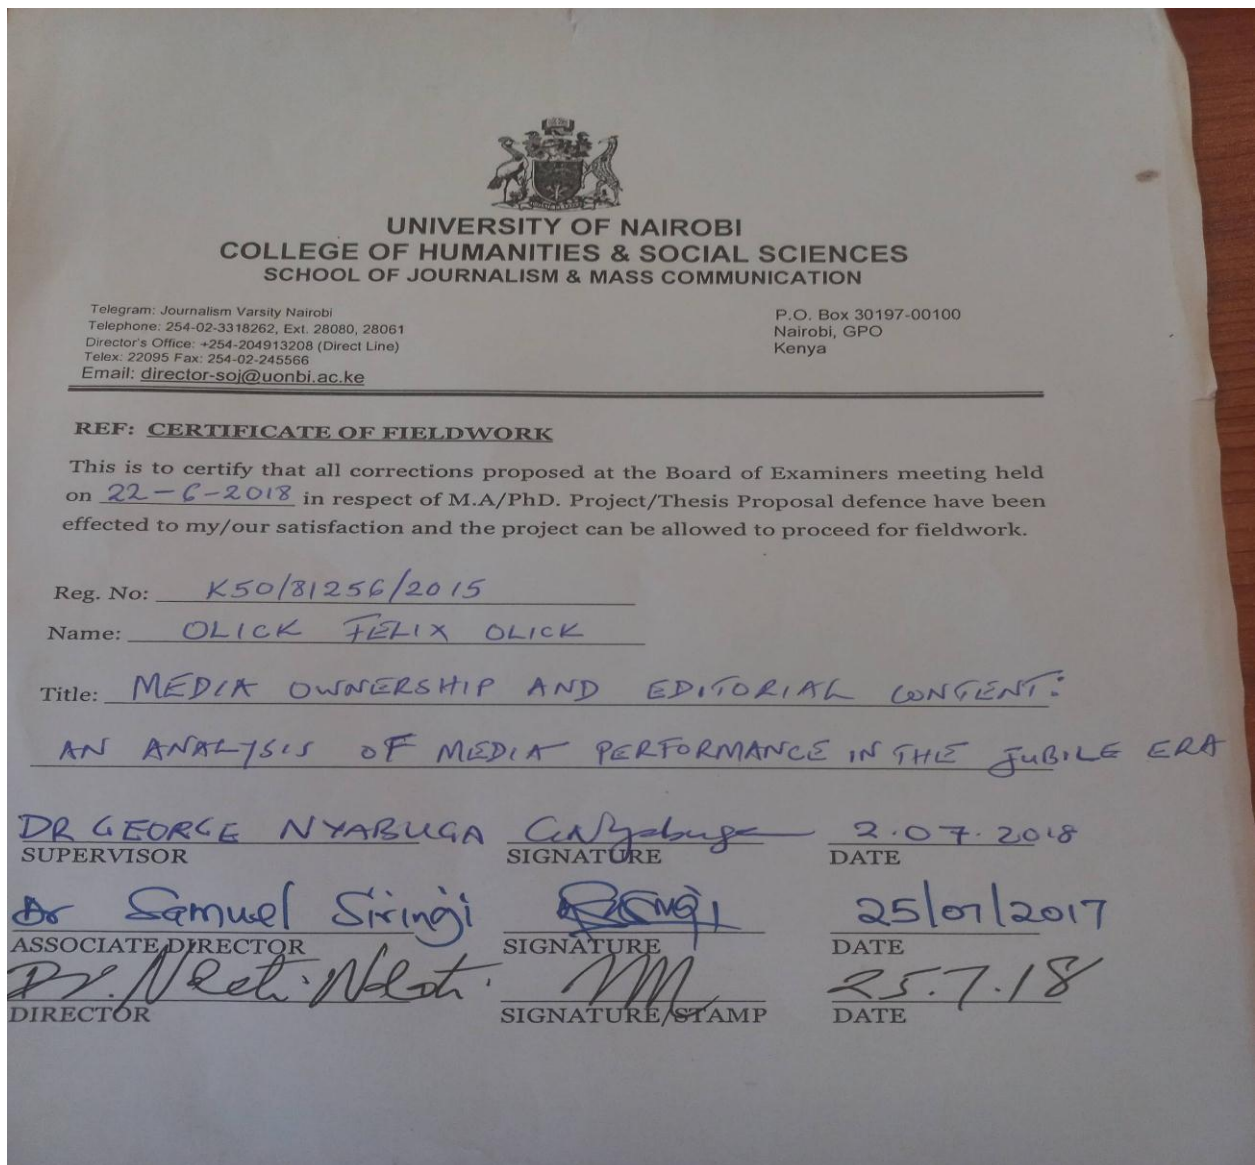 UNIVERSITY OF NAIROBI
COLLEGE OF HUMANITIES & SOCIAL SCIENCES
SCHOOL OF JOURNALISM & MASS COMMUNICATION
Telegram: Journalism Varsity Nairobi
Telephone: 254-02-3318262, Ext. 28080, 28061
Director's Office: +254-204913208 (Direct Line)
Telex: 22095 Fax: 254-02-245566
Email: director-soj@uonbi.ac.ke
P.O. Box 30197-00100
Nairobi, GPO
Kenya
REF: CERTIFICATE OF FIELDWORK
This is to certify that all corrections proposed at the Board of Examiners meeting held
on 22-6-2018 in respect of M.A/PhD. Project/Thesis Proposal defence have been
effected to my/our satisfaction and the project can be allowed to proceed for fieldwork.
Reg. No: K50/81256/2015
Name: OLICK FELIX OLICK
Title: MEDIA OWNERSHIP AND EDITORIAL CONTENT:
AN ANALYSIS OF MEDIA PERFORMANCE IN THE JUBILE ERA
DR GEORGE NYABUGA GNyabuga 2.07.2018
SUPERVISOR SIGNATURE DATE
Dr Samuel Siringi 25/07/2017
ASSOCIATE DIRECTOR SIGNATURE DATE
Dr. Ndeti Ndati 25.7.18
DIRECTOR SIGNATURE/STAMP DATE